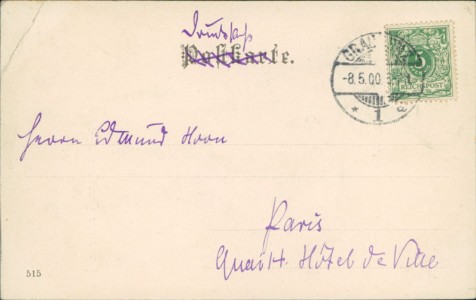 Drucksache
Postkarte.
GRAU
-8.5.00
* 1 a
5
REICHSPOST
Herrn Edmund Horn
Paris
Quai H. Hôtel de Ville
515